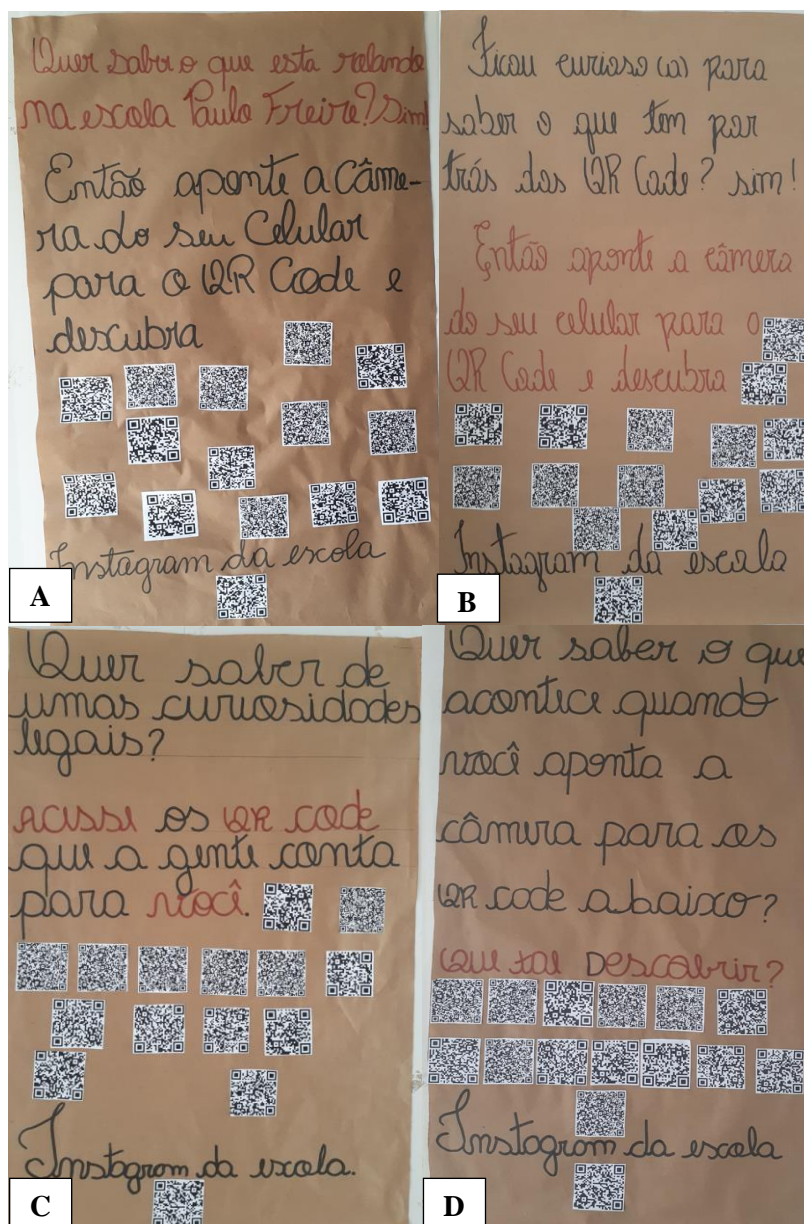 Quer saber o que esta rolando
na escola Paulo Freire? Sim!
Então aponte a Câme-
ra do seu Celular
para o QR Code e
descubra
Instagram da escola
A
Ficou curioso (a) para
saber o que tem por
trás dos QR Code? sim!
Então aponte a câmera
do seu celular para o
QR Code e descubra
Instagram da escola
B
Quer saber de
umas curiosidades
legais?
Acesse os QR code
que a gente conta
para você.
Instagram da escola.
C
Quer saber o que
acontece quando
você aponta a
câmera para os
QR code abaixo?
Que tal Descobrir?
Instagram da escola
D